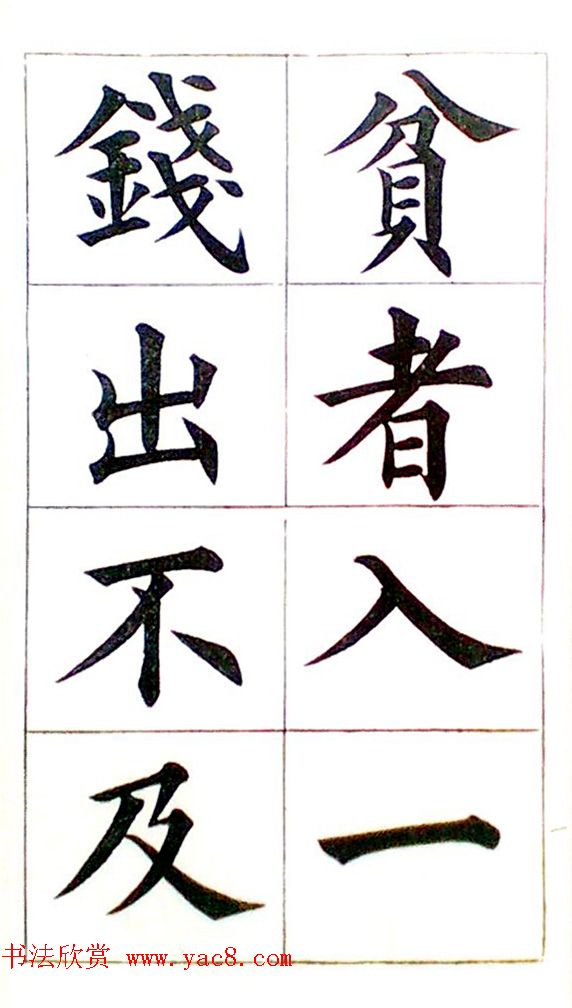 貧者入一
錢出不及
书法欣赏 www.yac8.com